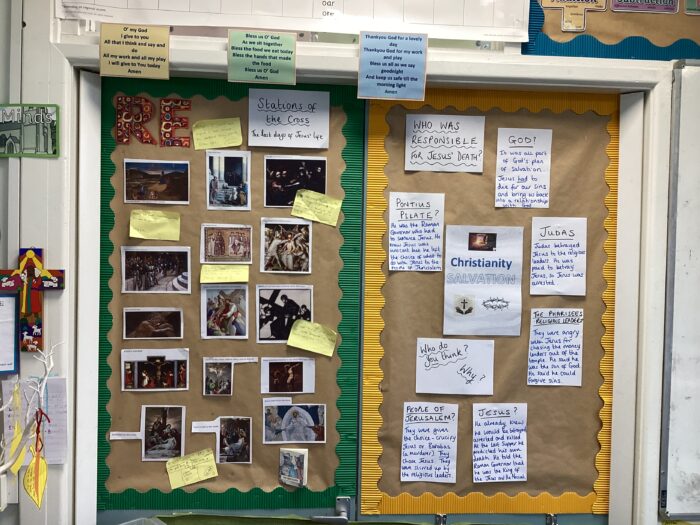 oar
O' my God
I give to you
All that I think and say and
do
All my work and all my play
I will give to You today
Amen
Bless us O' God
As we sit together
Bless the food we eat today
Bless the hands that made
the food
Bless us O' God
Amen
Thankyou God for a lovely
day
Thankyou God for my work
and play
Bless us all as we say
goodnight
And keep us safe till the
morning light
Amen
Minds
RE
Stations of
the Cross
The last days of Jesus' life
WHO WAS
RESPONSIBLE
FOR JESUS' DEATH?
GOD?
It was all part
of God's plan
of salvation.
Jesus had to
die for our sins
and bring us back
into a relationship
with God
PONTIUS
PILATE?
He was the Roman
Governor who had
to sentence Jesus. He
knew Jesus was
innocent but he left
the choice of what to
do with Jesus to the
people of Jerusalem
Christianity
SALVATION
JUDAS
Judas betrayed
Jesus to the religious
leaders. He was
paid to betray
Jesus, so Jesus was
arrested.
THE PHARISEES
RELIGIOUS LEADERS
They were angry
with Jesus for
chasing the money
lenders out of the
temple. He said he
was the son of God
He said he could
forgive sins.
Who do
you think?
Why?
PEOPLE OF
JERUSALEM?
They were given
the choice - crucify
Jesus or Barabas
(a murderer) They
chose Jesus. They
were stirred up by
the religious leaders.
JESUS?
He already knew
he would be betrayed
arrested and killed
At the Last Supper he
predicted his own
death. He told the
Roman Governor that
he was the King of
the Jews and the Messiah